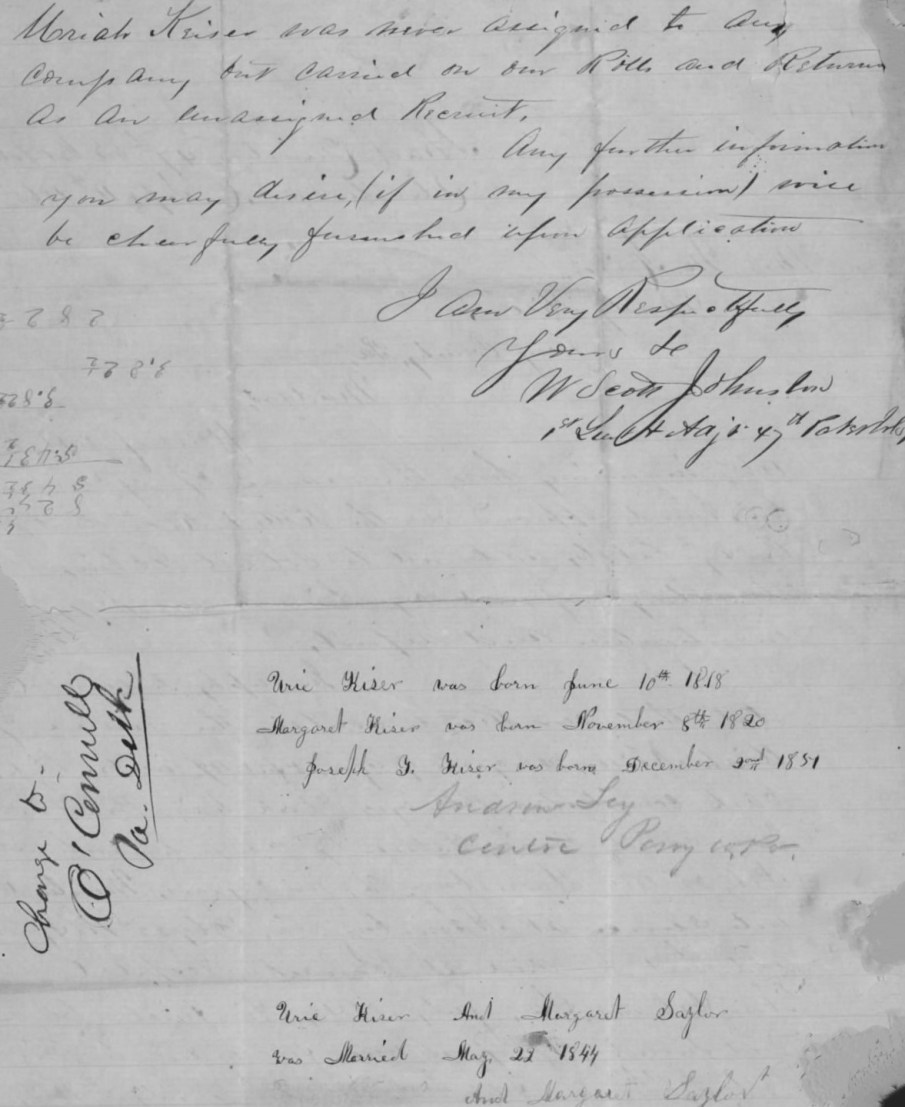 Uriah Keiser was never assigned to any
company, but carried on our Rolls and Returns
as an unassigned Recruit.
Any further information
you may desire, (if in my possession) will
be cheerfully furnished upon application
I am Very Respectfully
Yours &c
W Scott Johnston
1st Lieut & Adjt 47th
Charge to
Pa. Desk
Urie Kiser was born June 10th 1818
Margaret Kiser was born November 8th 1820
Joseph G. Kiser was born December 2nd 1851
Andrew Loy
Centre Perry co. Pa.
Urie Kiser And Margaret Saylor
was Married May 22 1844
And Margaret Saylor